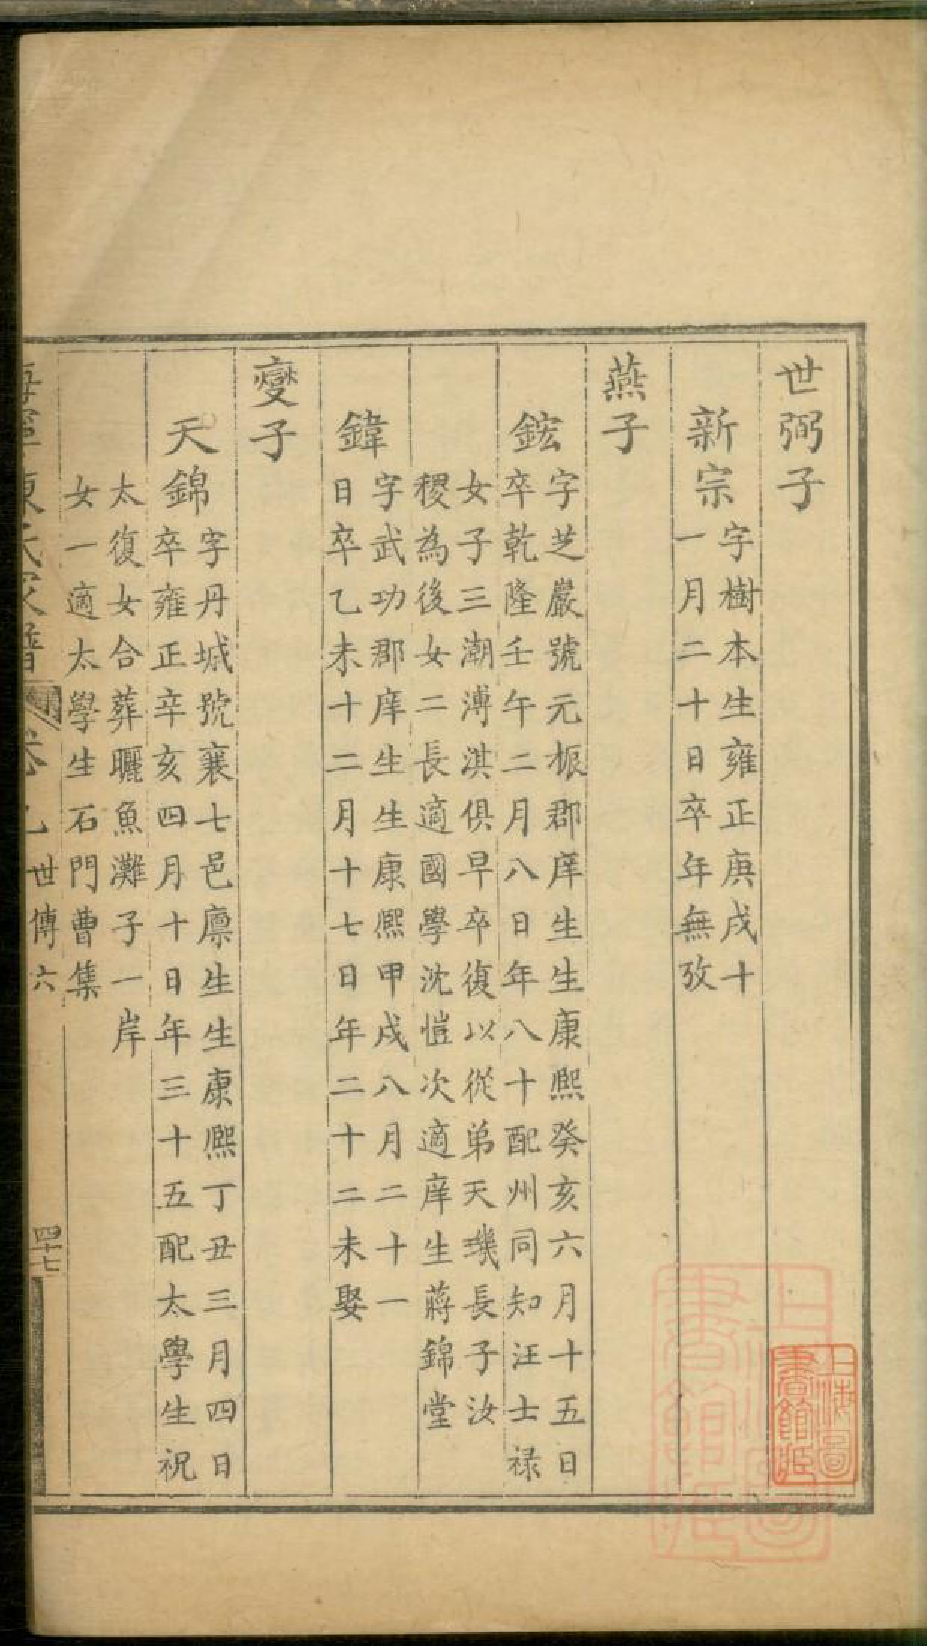 世弼子
新宗
字樹本生雍正庚戌十
一月二十日卒年無攷
燕子
鋐
字芝巖號元桭郡庠生生康熙癸亥六月十五日
卒乾隆壬午二月八日年八十配州同知汪士祿
女子三潮溥淇俱早卒復以從弟天璣長子汝
稷為後女二長適國學沈愷次適庠生蔣錦堂
鍏
字武功郡庠生生康熙甲戌八月二十一
日卒乙未十二月十七日年二十二未娶
變子
天錦
字丹城號襄七邑廩生生康熙丁丑三月四日
卒雍正辛亥四月十日年三十五配太學生祝
太復女合葬曬魚灘子一岸
女一適太學生石門曹集
海寧陳氏家譜
世傳六
四十七
上海圖
書館藏